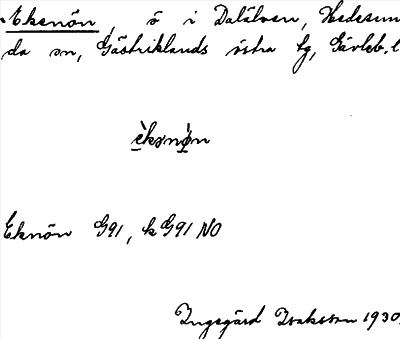 Eksnön, ö i Dalälven, Hedesun
da sn, Gästriklands östra tg, Gävleb. l
Eknön G91, k G91 NO
Ingegärd Isaksson 1930.